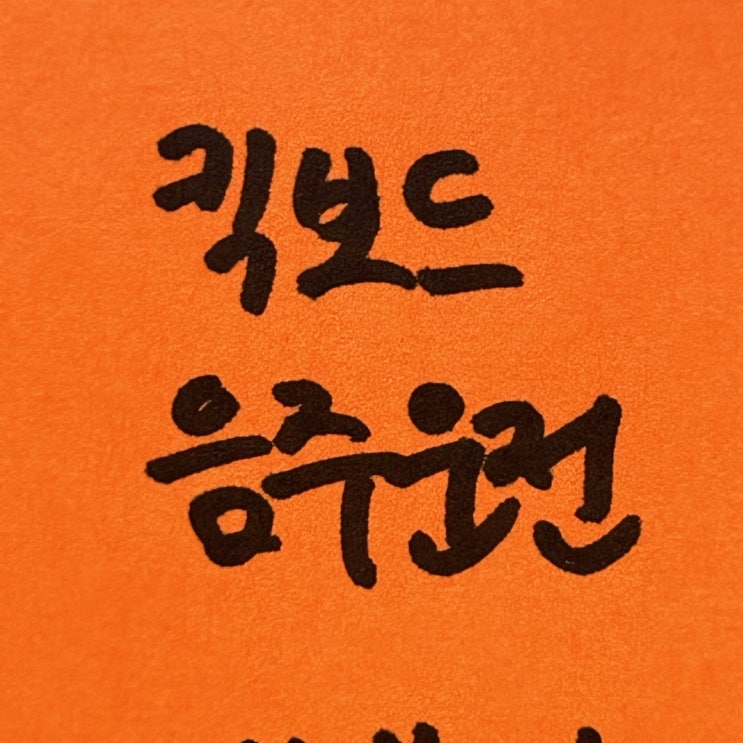 킥보드
음주운전